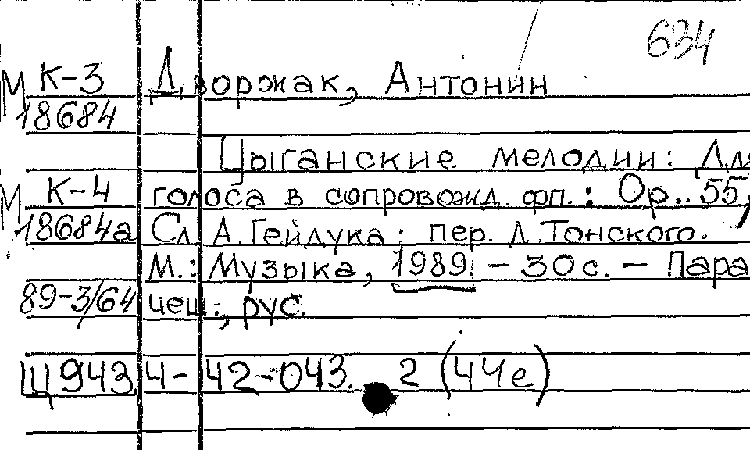 634
М К-3 Дворжак, Антонин
18684
Цыганские мелодии: Для
М К-4 голоса в сопровожд. фп.: Ор. 55,
18684а Сл. А. Гейдука; пер. Л. Тонского.
М.: Музыка, 1989. - 30 с. - Пара
89-3/64 чеш., рус.
Щ943.4-42-043. 2 (4Че)